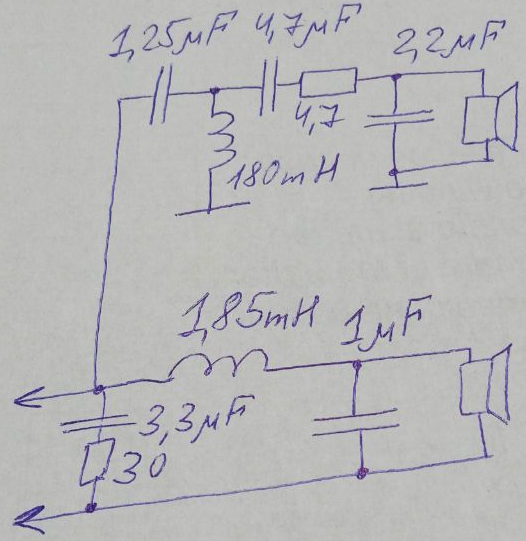 1,25µF 4,7µF 2,2µF
4,7
180mH
1,85mH 1µF
3,3µF
30